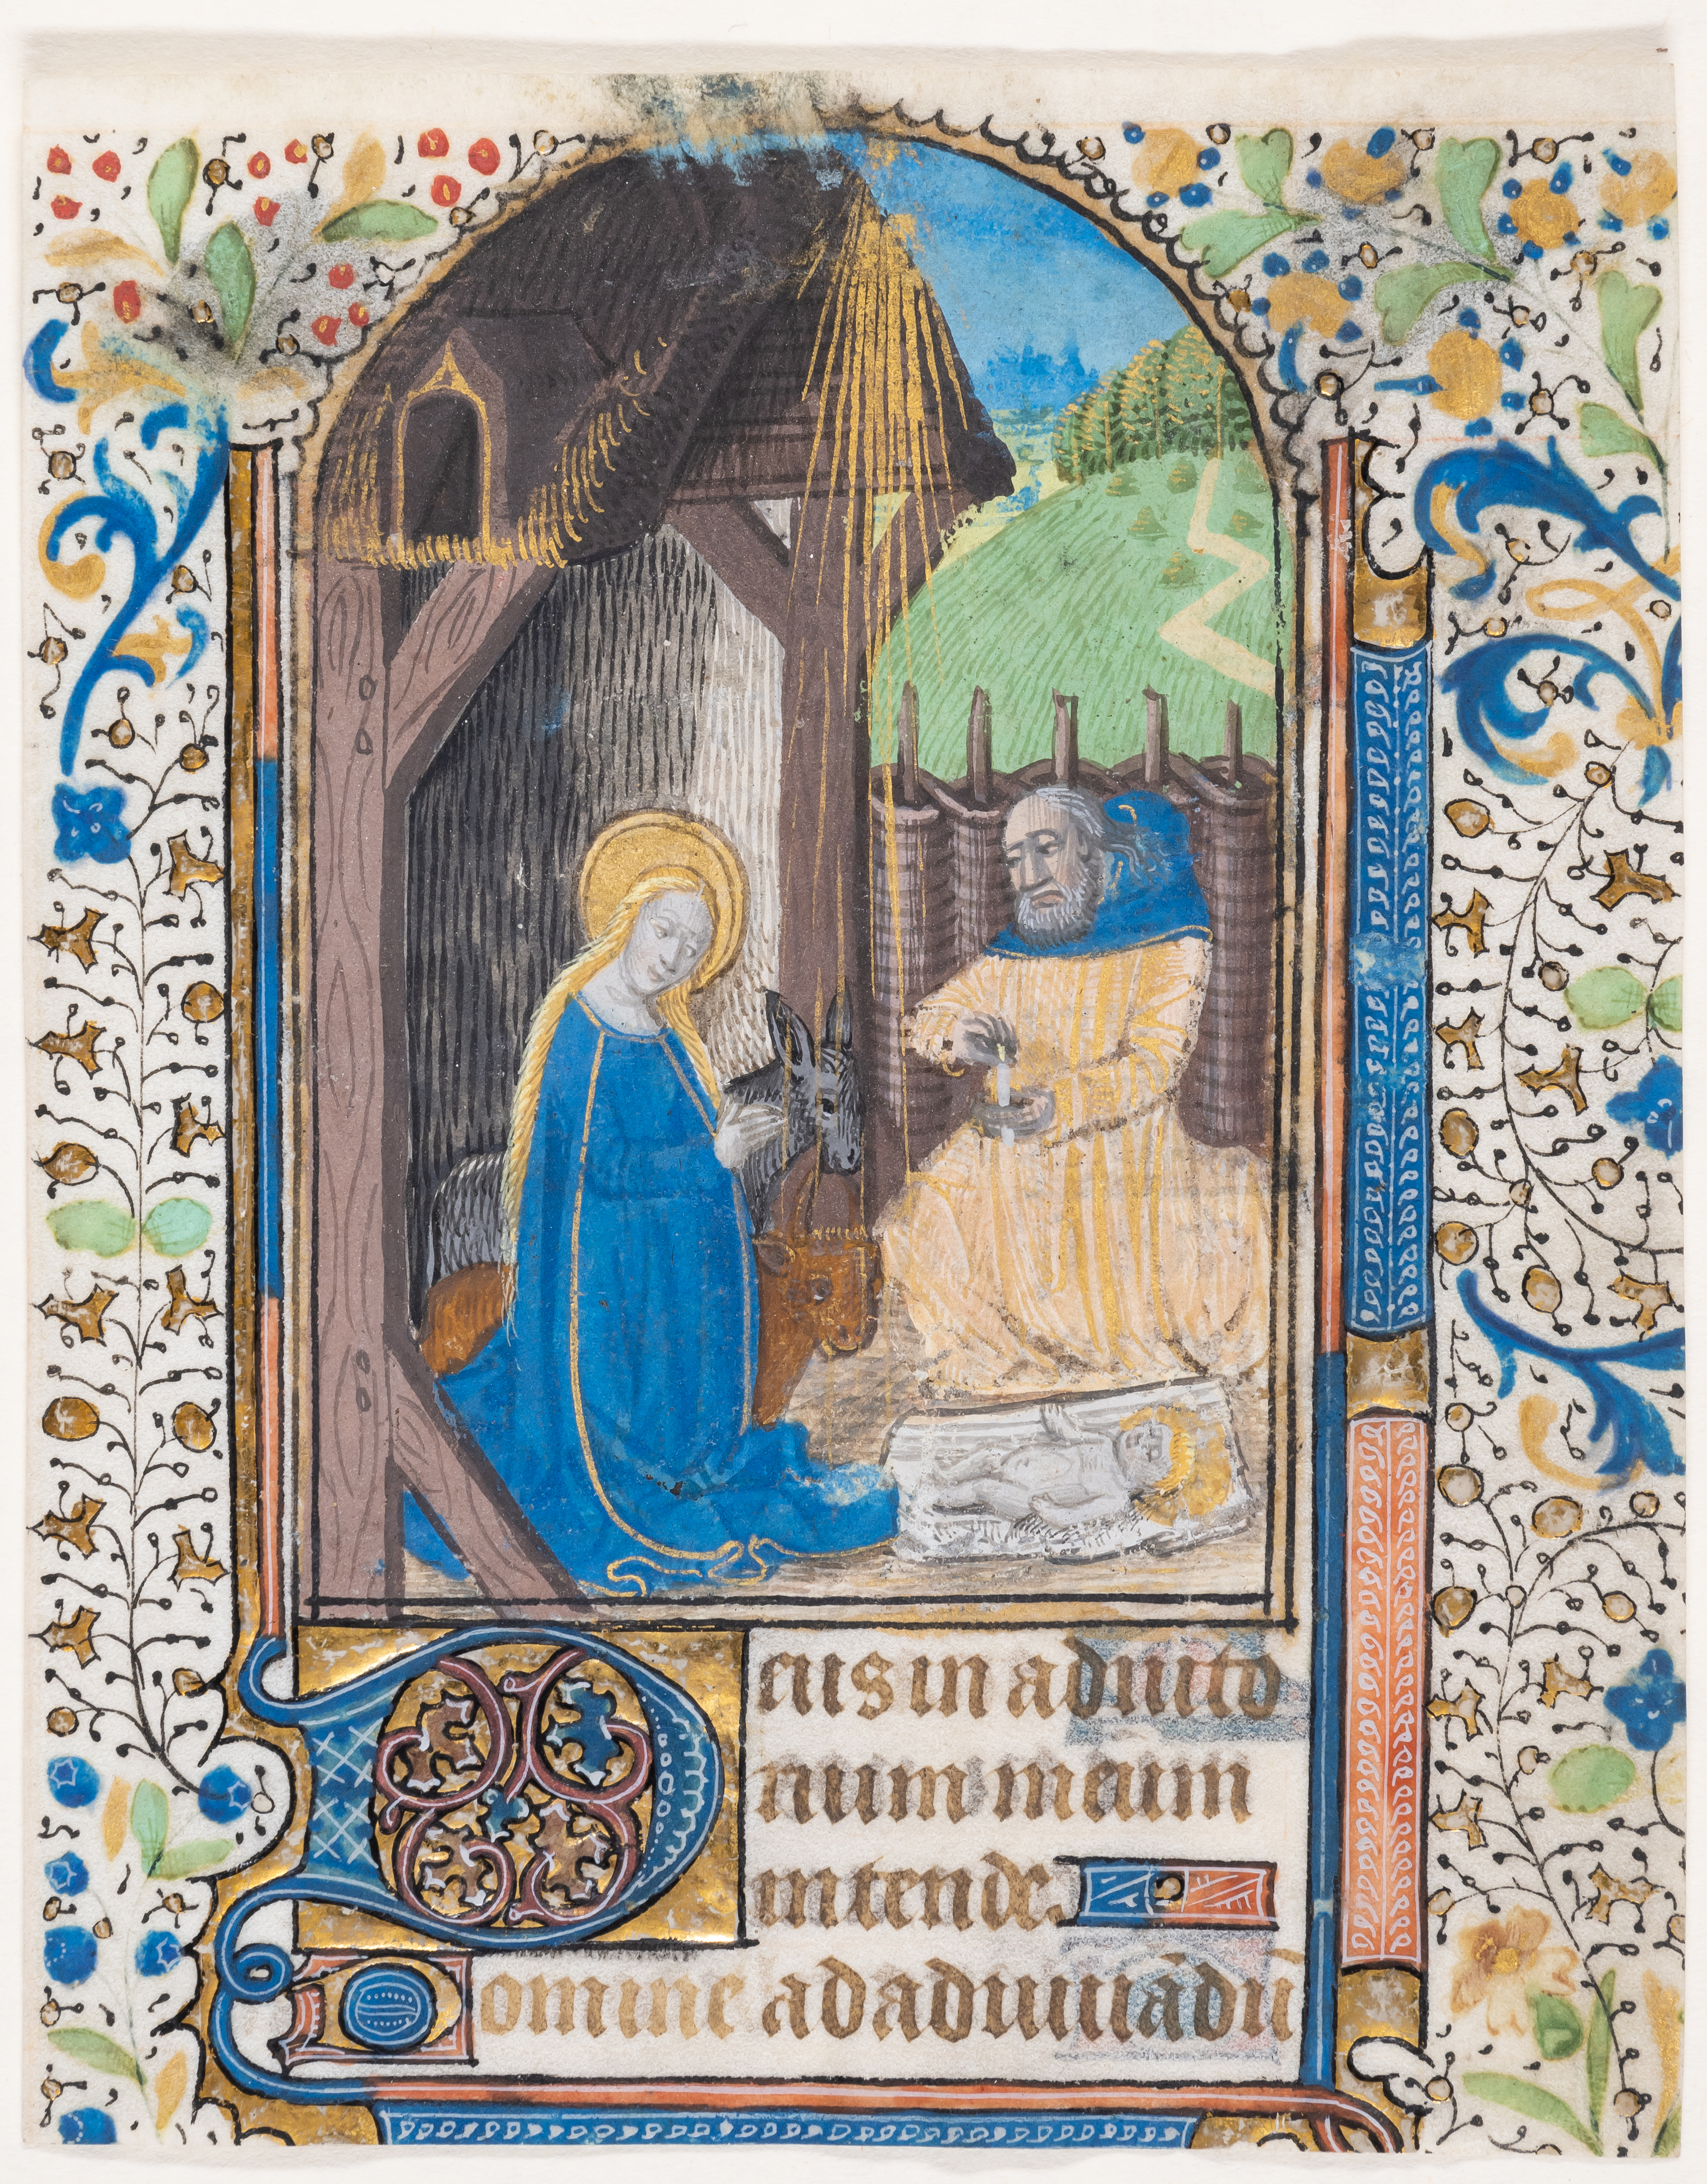 Deus in adiuto
rium meum
intende.
Domine ad adiuuādū